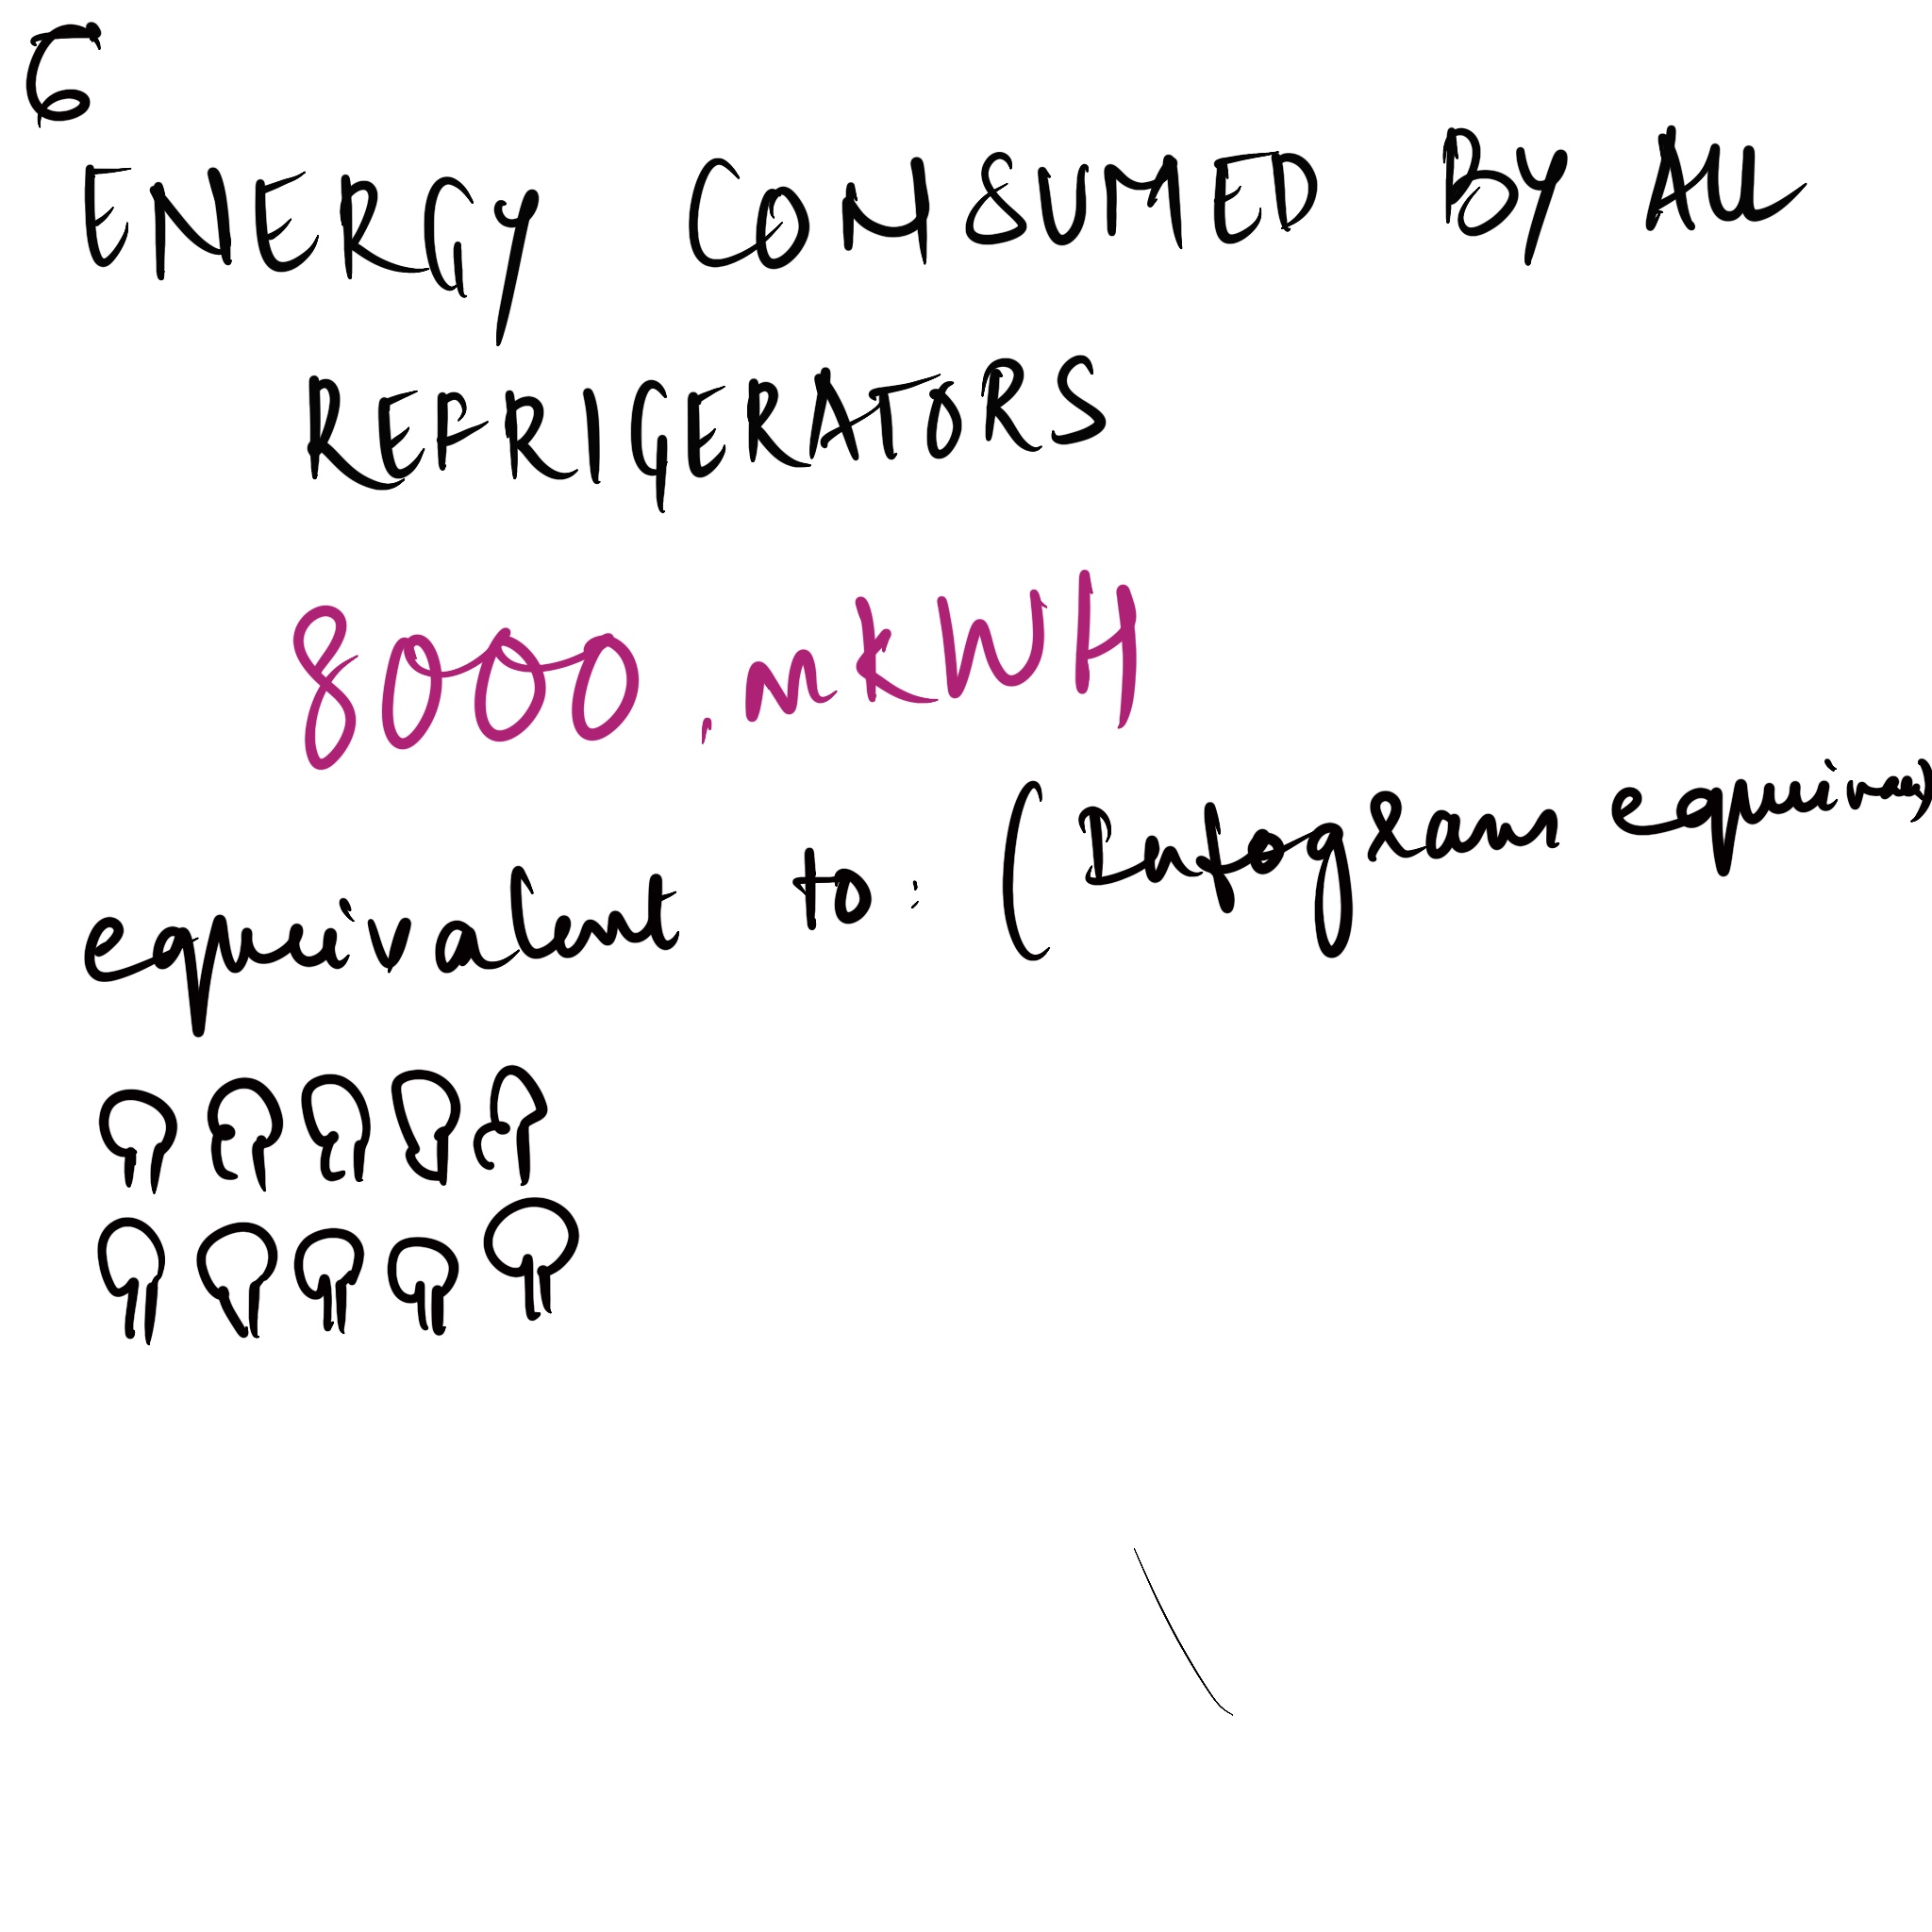 6
ENERGY CONSUMED BY ALL
REFRIGERATORS
8000, mkWH
equivalent to: (Infogram equiv)